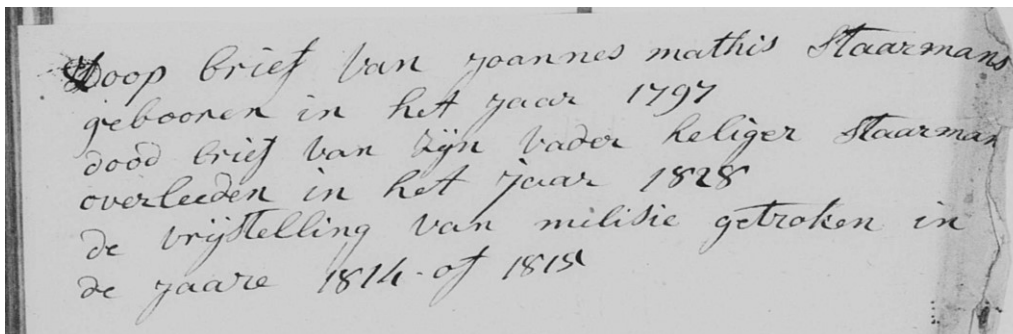 Doop brief van joannes mathis Staarmans
gebooren in het jaar 1797
dood brief van zijn vader heliger Staarman
overleeden in het jaar 1828
de vrijstelling van milisie getroken in
de jaare 1814 of 1815